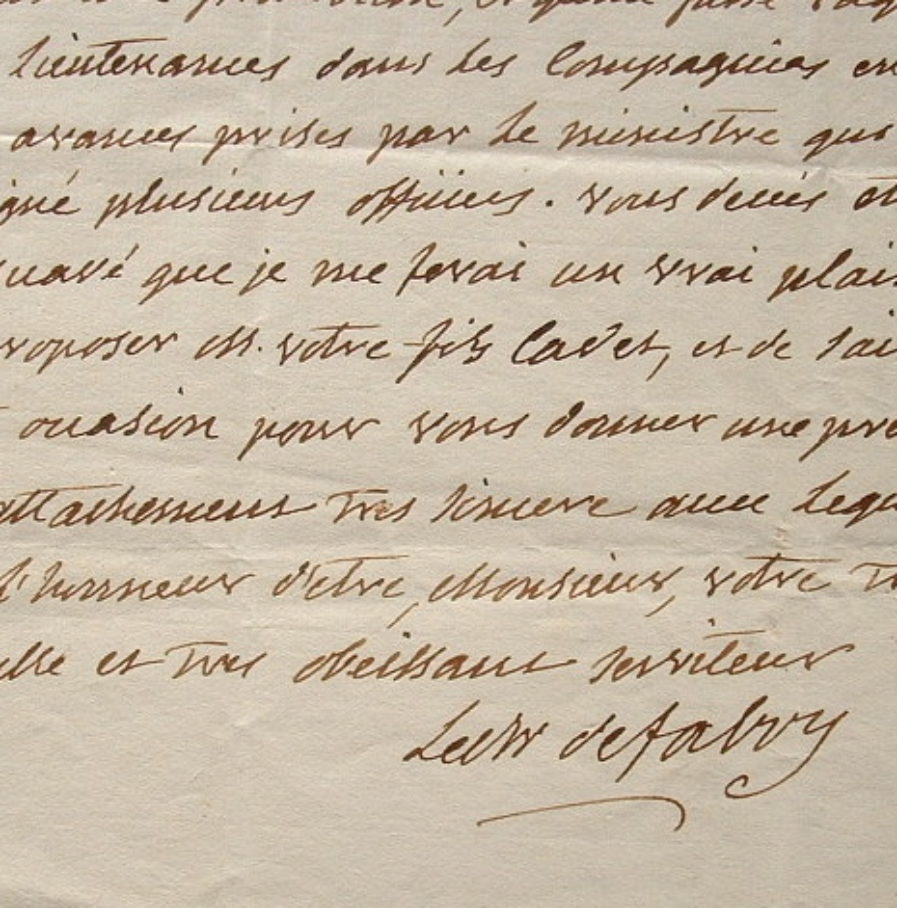 lieutenances dans les Compagnies en
avances prises par le ministre qui
gné plusieurs officiers. vous devés et
suadé que je me ferai un vrai plais
roposer M. votre fils Cadet, et de sai
occasion pour vous donner une pre
attachement tres sincere avec lequ
d'honneur d'etre, Monsieur, votre tr
ble et tres obeissant serviteur
Lechr de fabry